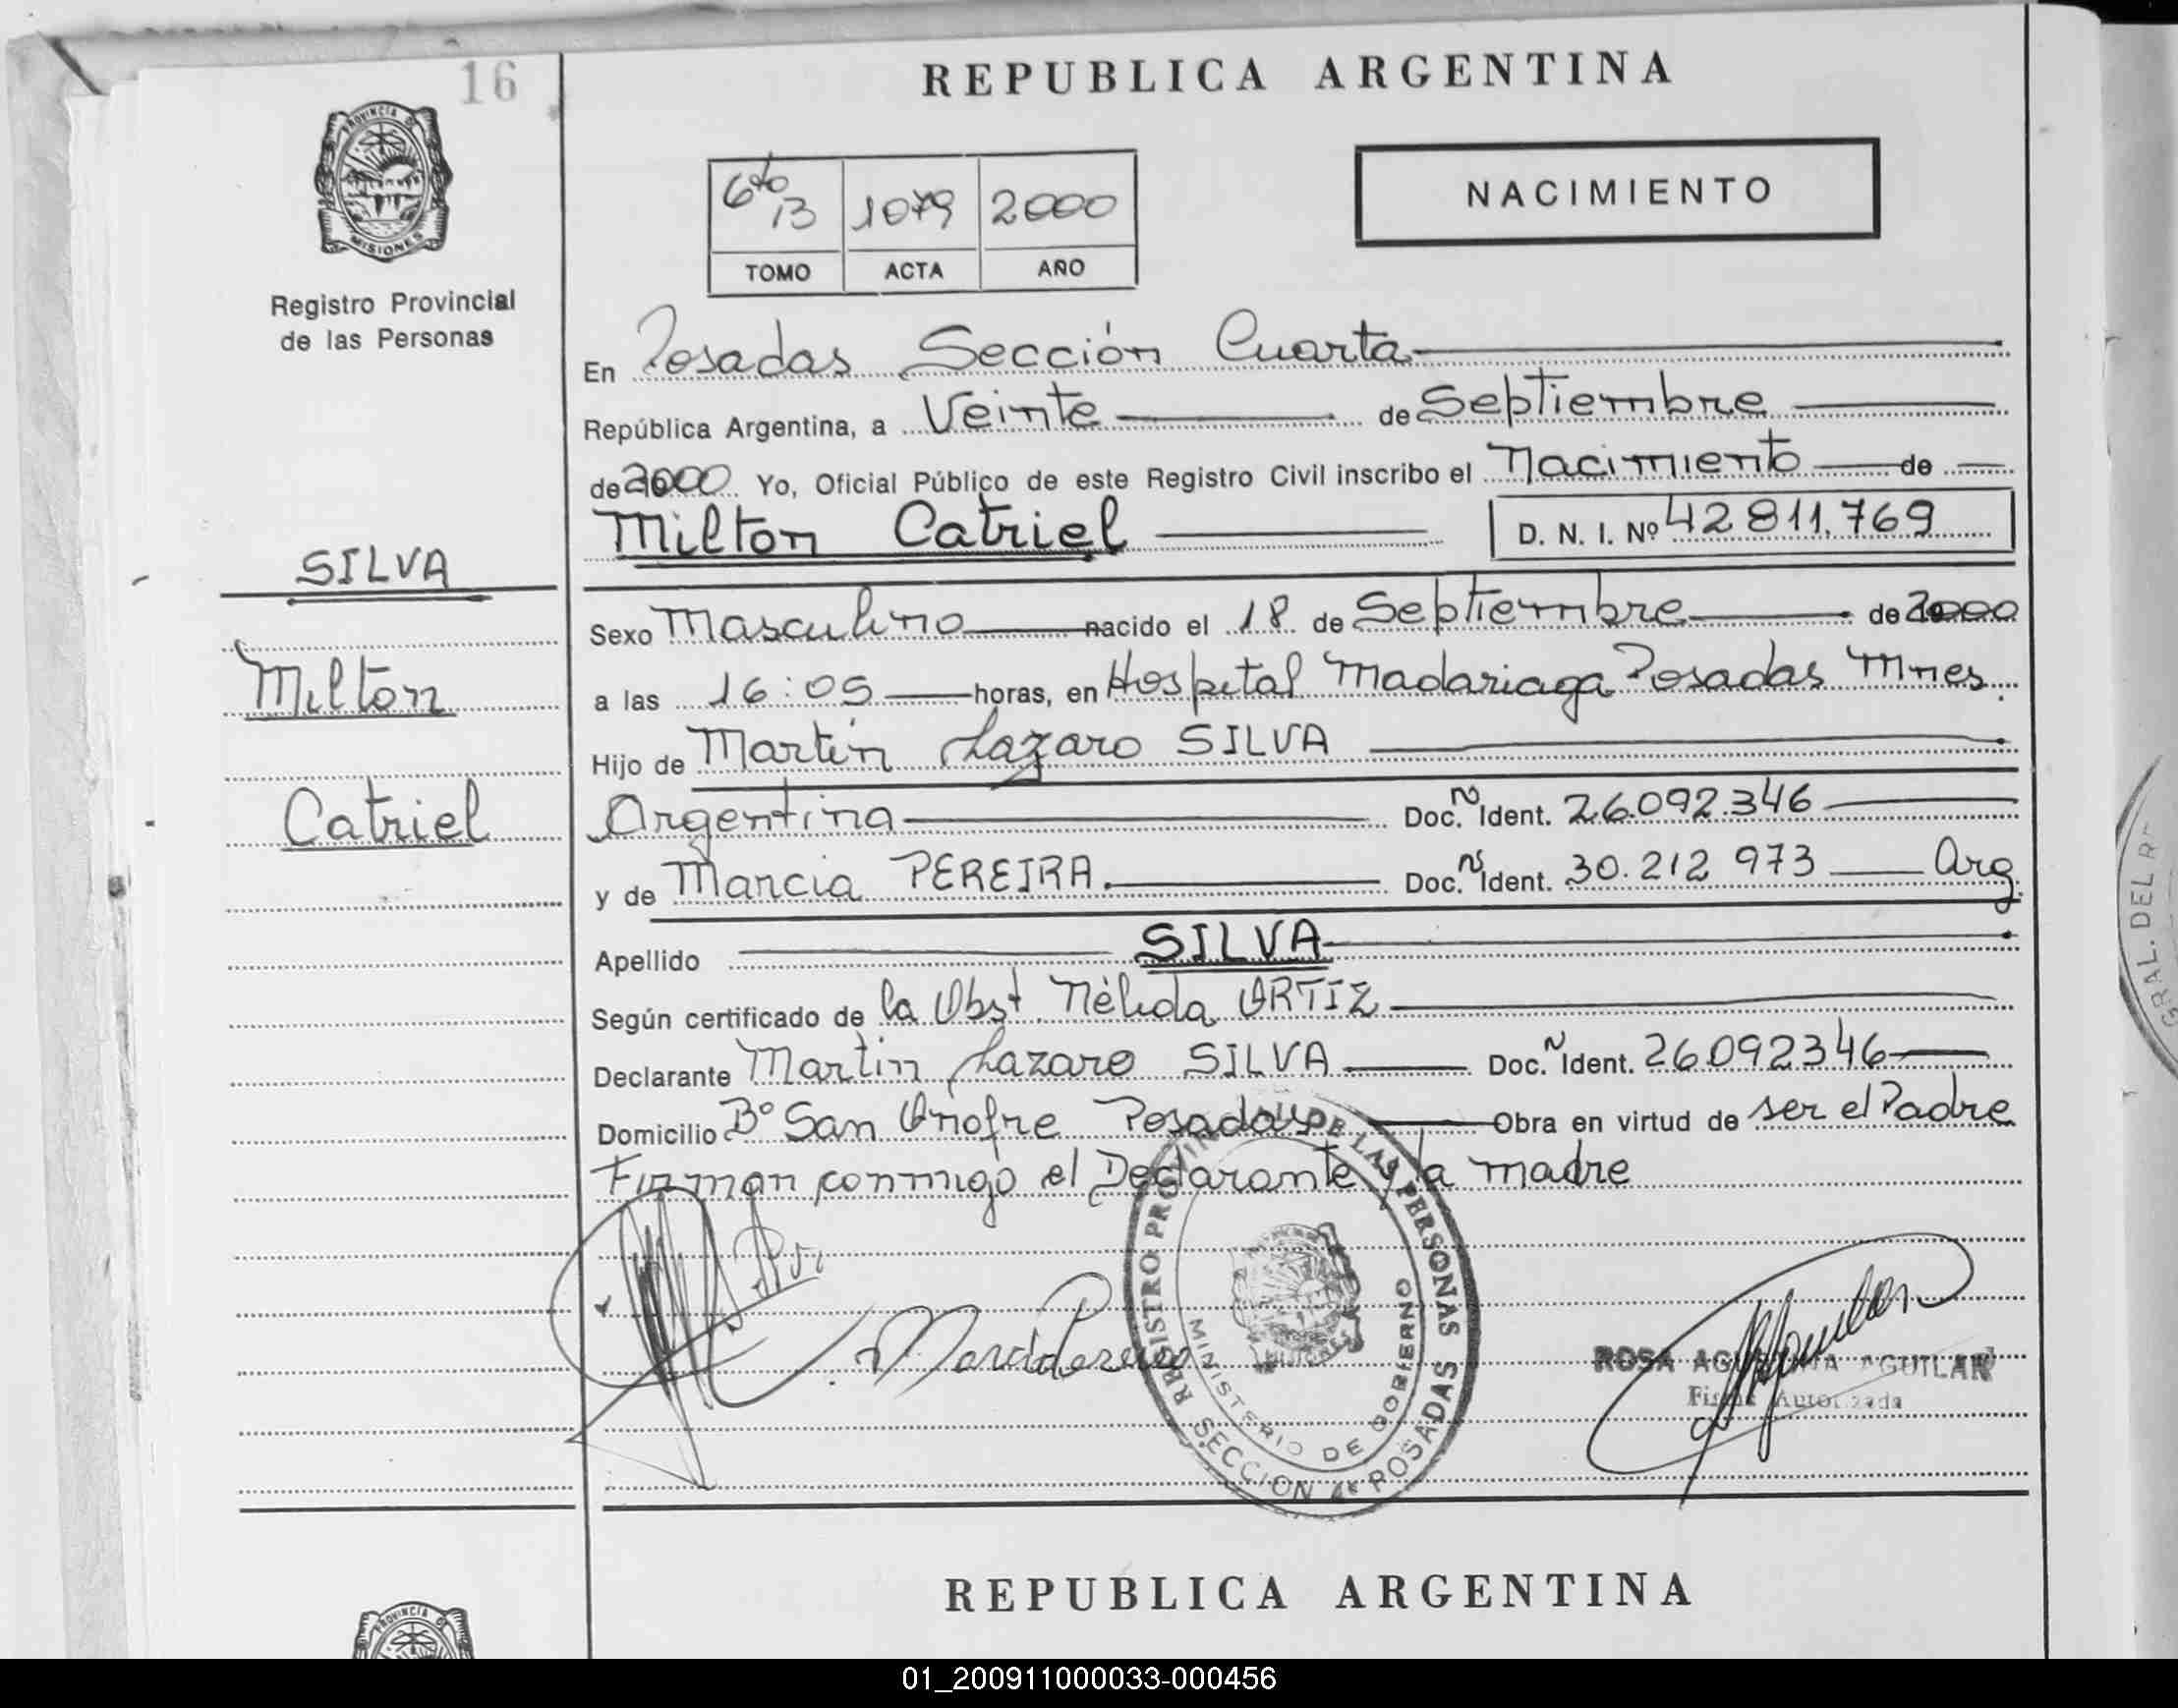 16
REPUBLICA ARGENTINA
PROVINCIA DE
MISIONES
Registro Provincial
de las Personas
6to 13 1079 2000
TOMO ACTA AÑO
NACIMIENTO
En Posadas Sección Cuarta
República Argentina, a Veinte de Septiembre
de 2000 Yo, Oficial Público de este Registro Civil inscribo el Nacimiento de
Milton Catriel D. N. I. Nº 42811.769
SILVA
Milton
Catriel
Sexo Masculino nacido el 18 de Septiembre de 2000
a las 16:05 horas, en Hospital Madariaga Posadas Mnes.
Hijo de Martín Lazaro SILVA
Argentina Doc. N Ident. 26.092.346
y de Marcia PEREIRA. Doc. N Ident. 30.212 973 Arg.
Apellido SILVA
Según certificado de la Obst. Nélida ORTIZ
Declarante Martin Lazaro SILVA Doc. N Ident. 26.092346
Domicilio Bº San Onofre Posadas Obra en virtud de ser el Padre
Firman conmigo el Declarante y la madre
REGISTRO PROVINCIAL DE LAS PERSONAS
MINISTERIO DE GOBIERNO
SECCION 4ª POSADAS
Marcia Pereira
ROSA AGUSTINA AGUILAR
Firma Autorizada
GRAL. DEL R
REPUBLICA ARGENTINA
PROVINCIA DE
01_200911000033-000456